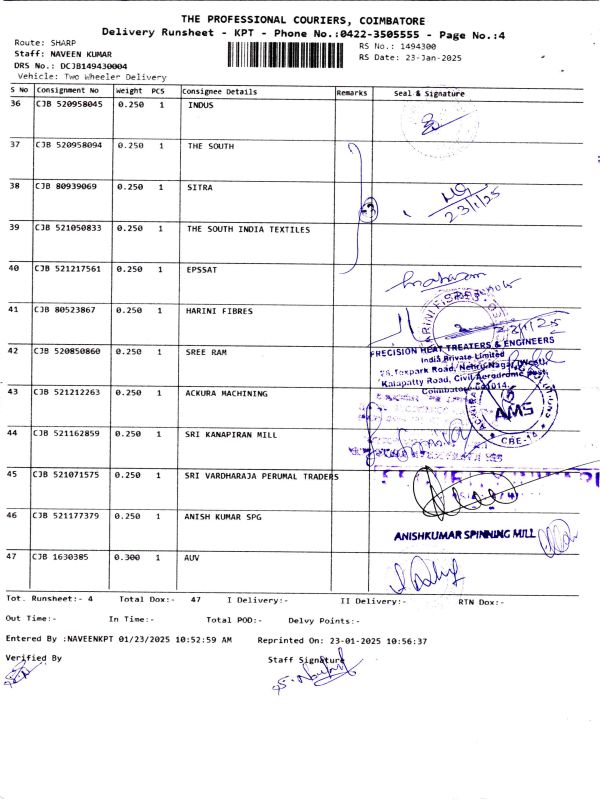 THE PROFESSIONAL COURIERS, COIMBATORE
Delivery Runsheet - KPT - Phone No.:0422-3505555 - Page No.:4
Route: SHARP
Staff: NAVEEN KUMAR
DRS No.: DCJB149430004
Vehicle: Two Wheeler Delivery
RS No.: 1494300
RS Date: 23-Jan-2025
S No Consignment No Weight PCS Consignee Details Remarks Seal & Signature
36 CJB 520958045 0.250 1 INDUS
37 CJB 520958094 0.250 1 THE SOUTH
38 CJB 80939069 0.250 1 SITRA
23/1/25
39 CJB 521050833 0.250 1 THE SOUTH INDIA TEXTILES
40 CJB 521217561 0.250 1 EPSSAT
41 CJB 80523867 0.250 1 HARINI FIBRES
23/1/25
42 CJB 520850860 0.250 1 SREE RAM
PRECISION HEAT TREATERS & ENGINEERS
India Private Limited
Texpark Road, Nehru Nagar (West),
Kalapatty Road, Civil Aerodrome Post,
Coimbatore-641014.
43 CJB 521212263 0.250 1 ACKURA MACHINING
AMS
CBE-14
44 CJB 521162859 0.250 1 SRI KANAPIRAN MILL
45 CJB 521071575 0.250 1 SRI VARDHARAJA PERUMAL TRADERS
46 CJB 521177379 0.250 1 ANISH KUMAR SPG
ANISHKUMAR SPINNING MILL
47 CJB 1630385 0.300 1 AUV
Tot. Runsheet:- 4 Total Dox:- 47 I Delivery:- II Delivery:- RTN Dox:-
Out Time:- In Time:- Total POD:- Delvy Points:-
Entered By :NAVEENKPT 01/23/2025 10:52:59 AM Reprinted On: 23-01-2025 10:56:37
Verified By Staff Signature